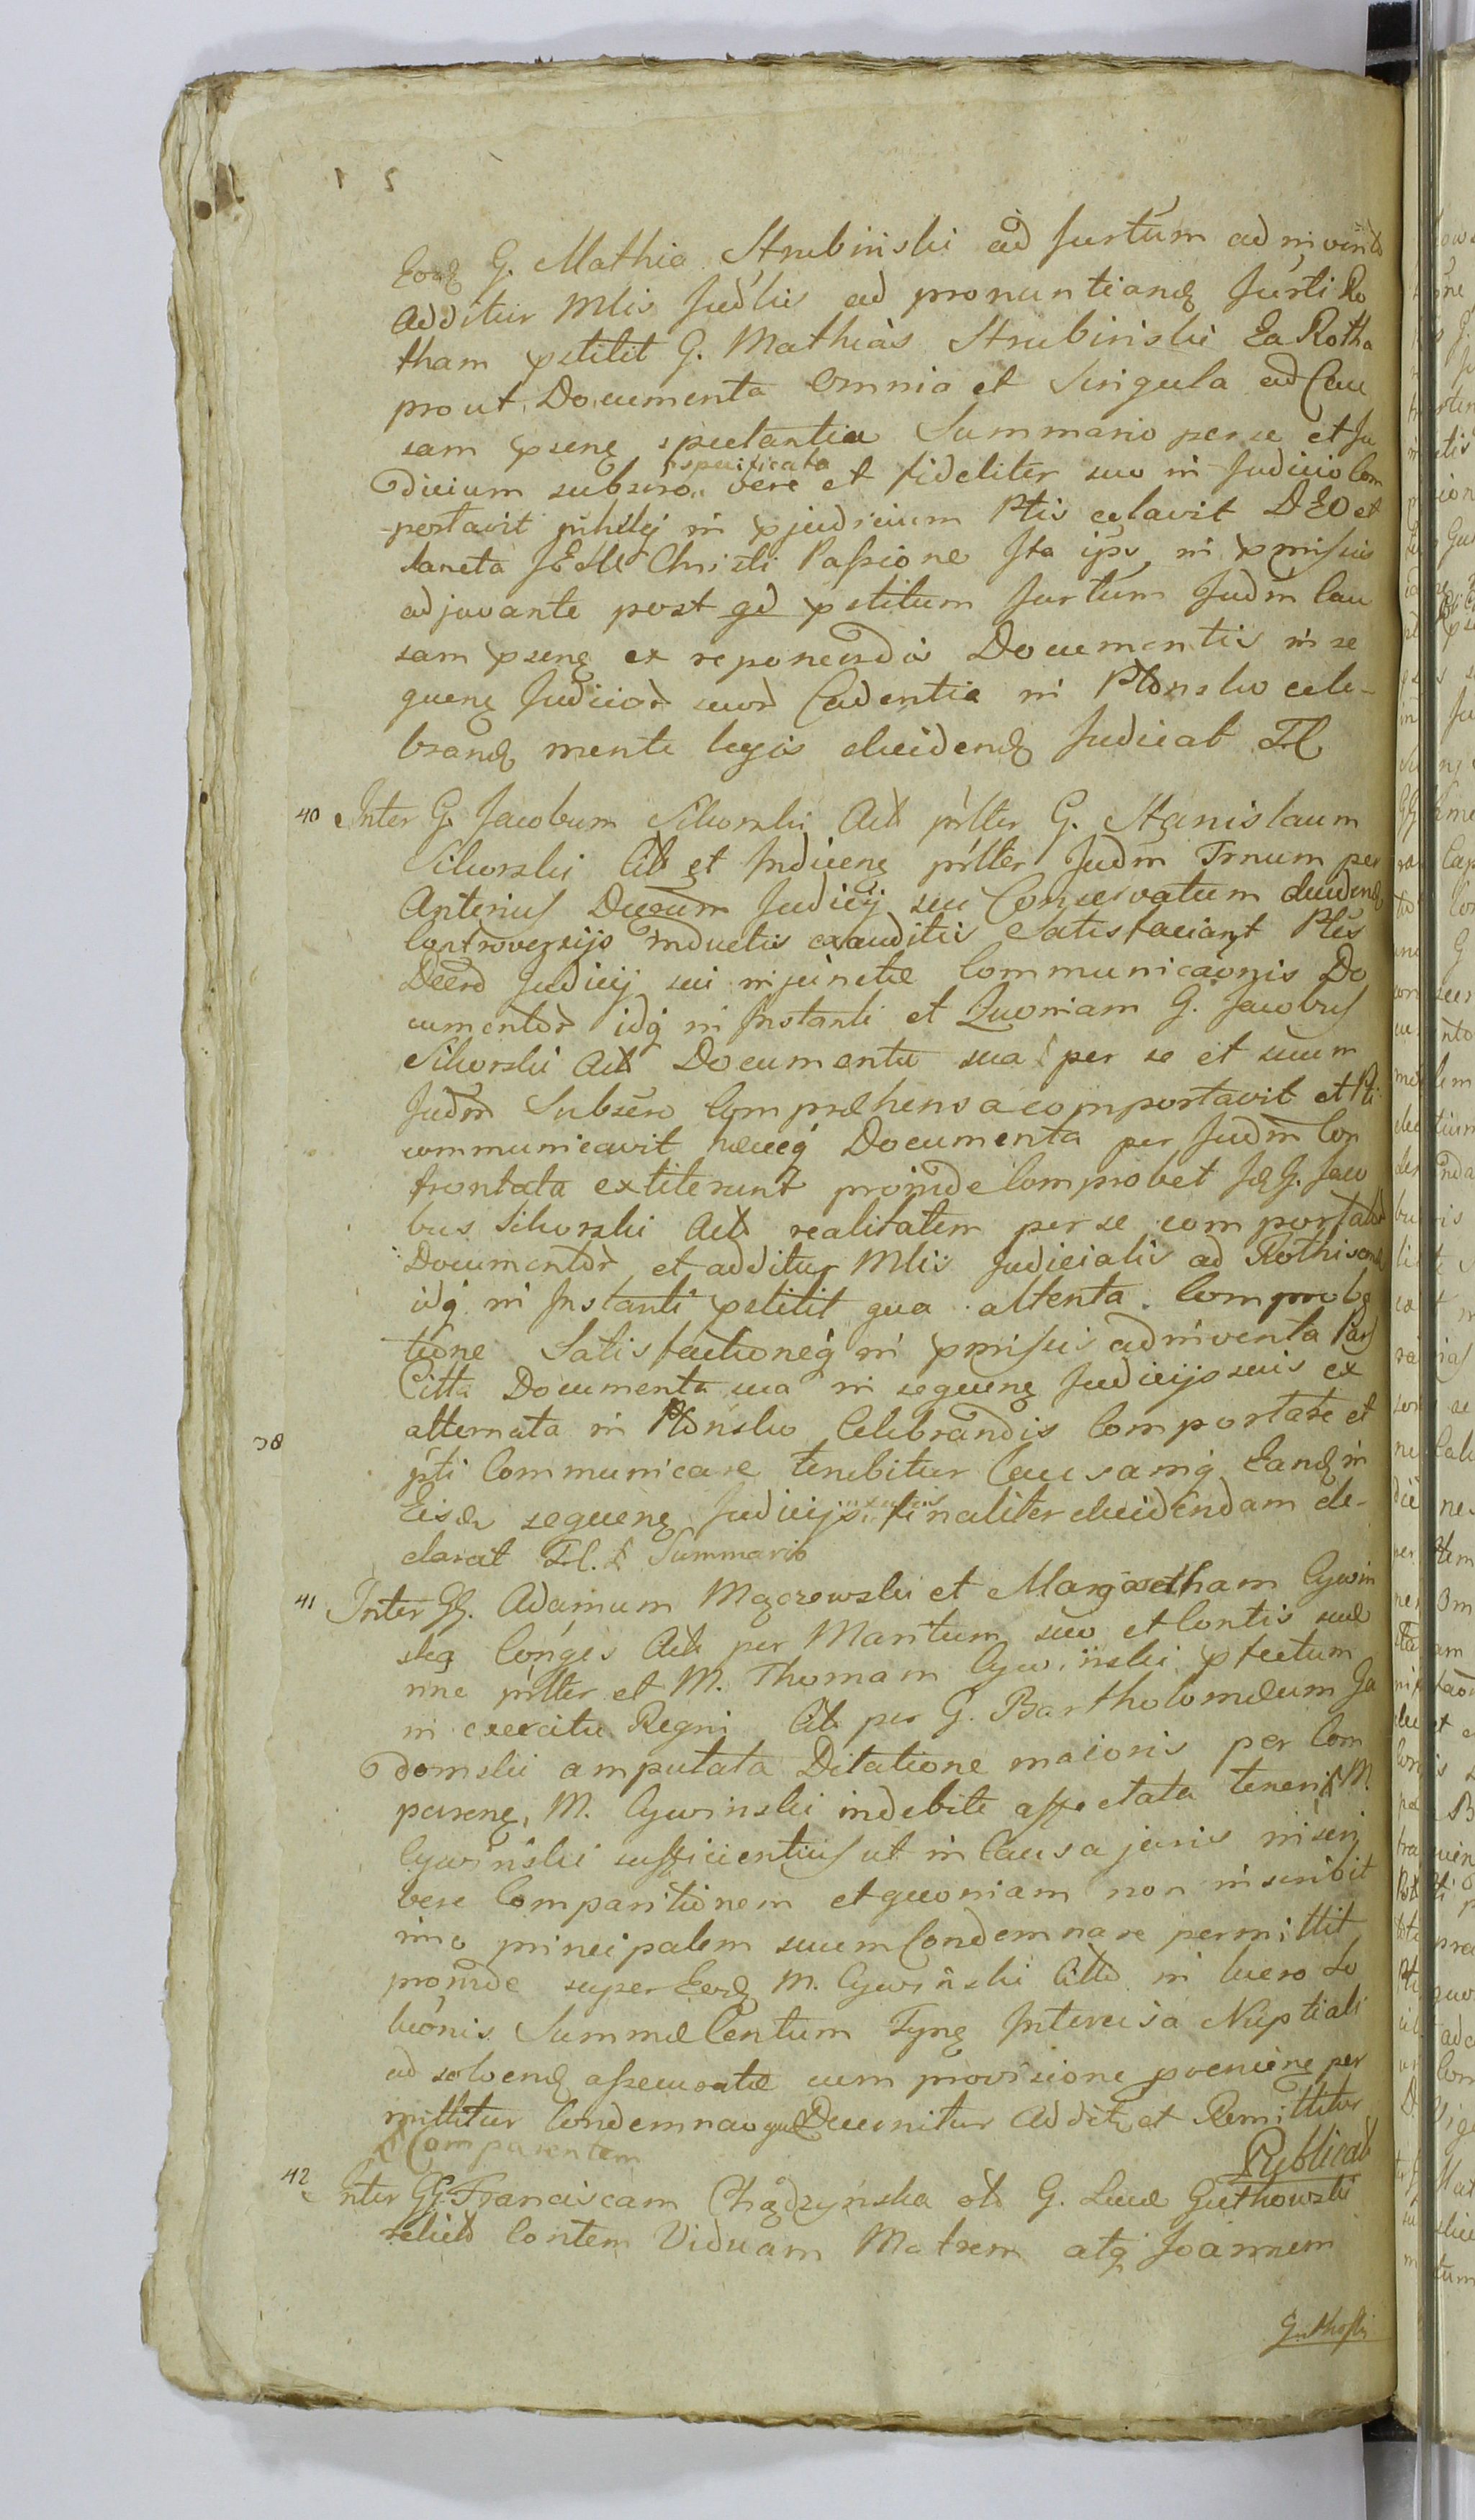 Eodq G. Mathia Strubinski ad Jurtum adinvento
additur Mlis Judlis ad pronuntiandq Jurti Ro
tham pstitit G. Mathias Strubinski Ea Rotha
prout Documenta Omnia et Singula ad Cau
sam psenq spectantia Summario per se et Ju
dicium subscro specificata vere et fideliter suo in Judicio Com
portavit nihilq in pjudicium Ptis celavit DEO et
Sancta JESU Christi Passione Ita ipso in pmissis
adjuvante post qd pstitum Jurtum Judm Cau
sam psenq ex reponendis Documentis in se
quenq Judicior suor Cadentia in Płonsko cele-
brandq mente legis decidendq Judicat Trl
40 Inter G. Jacobum Sikorski Act psltter G. Stanislaum
Sikorski Cit et Judicenq psltter Judm Trnum per
Anterius Decrum Judicij sui Conservatum decidendq
Controversijs inductis exauditis Satisfaciant Ptes
Decro Judicij sui injunctæ Communicaonis Do
cumentor idq in Instanti et Quoniam G. Jacobus
Sikorski Act Documenta sua per se et suum
Judm Subscro Compræhensa comportavit et Pti
communicavit hæccq Documenta per Judm Con
frontata extiterunt proinde Comprobet Jdq G. Jaco
bus Sikorski Act realitatem per se comportator
Documentor et additur Mlis Judicialis ad Rothisandq
idq in Instanti pstitit qua attenta Comproba
tione Satisfactioneq in pmissis adinventa Pars
Citta Documenta sua in sequenq Judicijs suis ex
alternata in Płonsko Celebrandis Comportare et
pti Communicare tenebitur Causamq Eandq in
Eisdq sequenq Judicijs finaliter decidendam de-
clarat Trl. Summario
41 Inter GG. Adamum Mączewski et Margaretham Cywin
ską Conges Act per Maritum suo et Contis suæ
nne psltter et M. Thomam Cywinski pfectum
in exercitu Regni Cit per G. Bartholomæum Ja
domski amputata Dilatione maioris per Com
parenq, M. Cywinski indebite affectata teneri M.
Cywinski sufficientius ut in Causa juris inscri
bere Comparitionem et quoniam non inscribit
imo principalem suum Condemnare permittit
proinde super Eodq M. Cywinski Citto in lucro So
luonis Summæ Centum Tynq Intercisa Nuptiali
ad solvendq assecuratæ cum provisione pvenienq per
mittitur Condemnao quæ Decernitur Addita et Remittitur
Comparentem
Publicat
42 Inter GG. Franciscam Chądzynska olo G. Lucæ Gutkowski
relicto Contem Viduam Matrem atq Joannem
Gutkoski